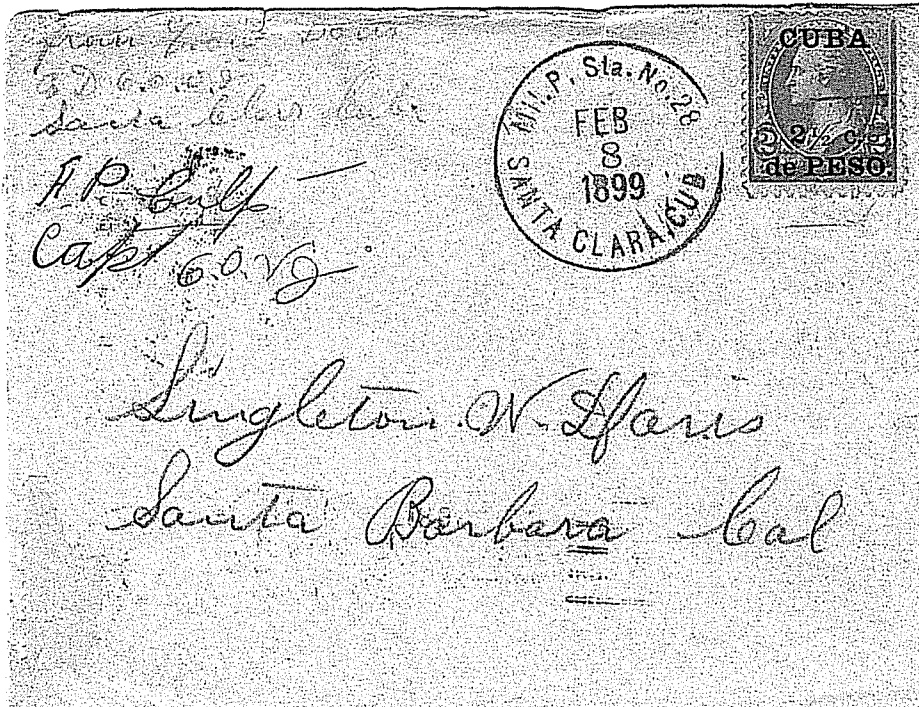 from
Santa Clara Cuba
H.P. Culp
Capt 6.O.V.I.
Mil. P. Sta. No. 28
FEB
8
1899
SANTA CLARA, CUB
CUBA
2 2½ c. 2
de PESO.
Singleton W.
Santa Barbara Cal